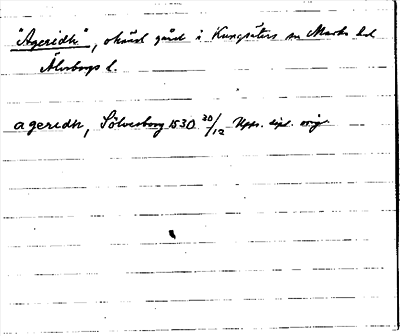 "Ageridh", okänd gård i Kungsäters sn Marks hd
Älvsborgs l.
ageridh, Sölvesborg 1530 30/12 Upps. dipl. orig.